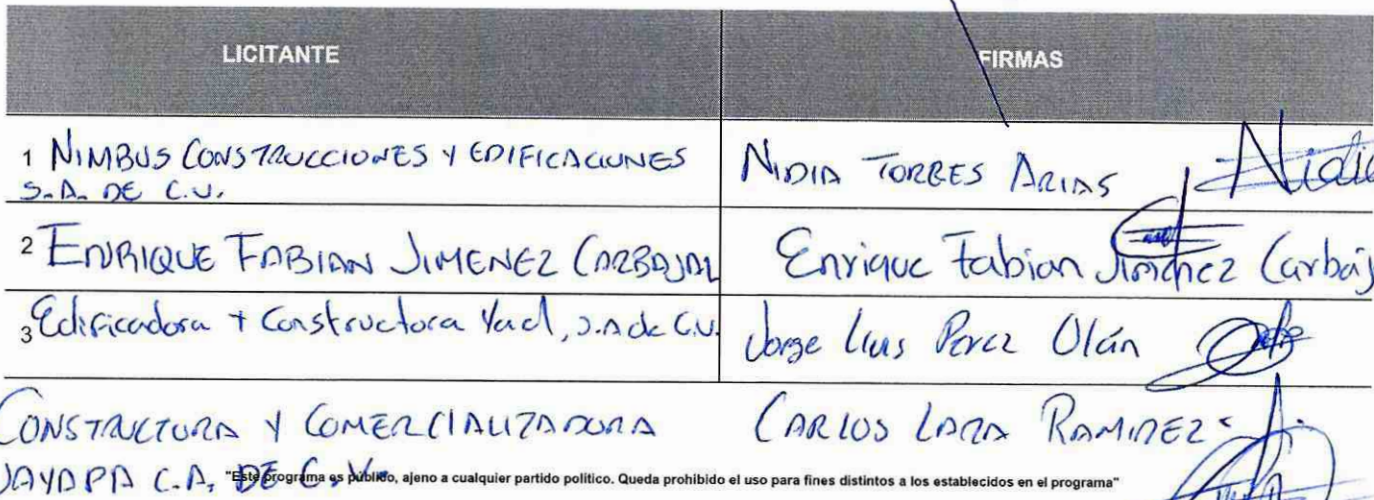 LICITANTE FIRMAS
1 NIMBUS CONSTRUCCIONES Y EDIFICACIONES NIDIA TORRES ARIAS Nidia
S.A. DE C.V.
2 ENRIQUE FABIAN JIMENEZ CARBAJAL Enrique Fabian Jimenez Carbaj
3 Edificadora + Constructora Yad, S.A de C.V. Jorge Luis Perez Olán
CONSTRUCTORA Y COMERCIALIZADORA CARLOS LARA RAMIREZ
JAYAPA C.A. DE C.V.
"Este programa es público, ajeno a cualquier partido político. Queda prohibido el uso para fines distintos a los establecidos en el programa"